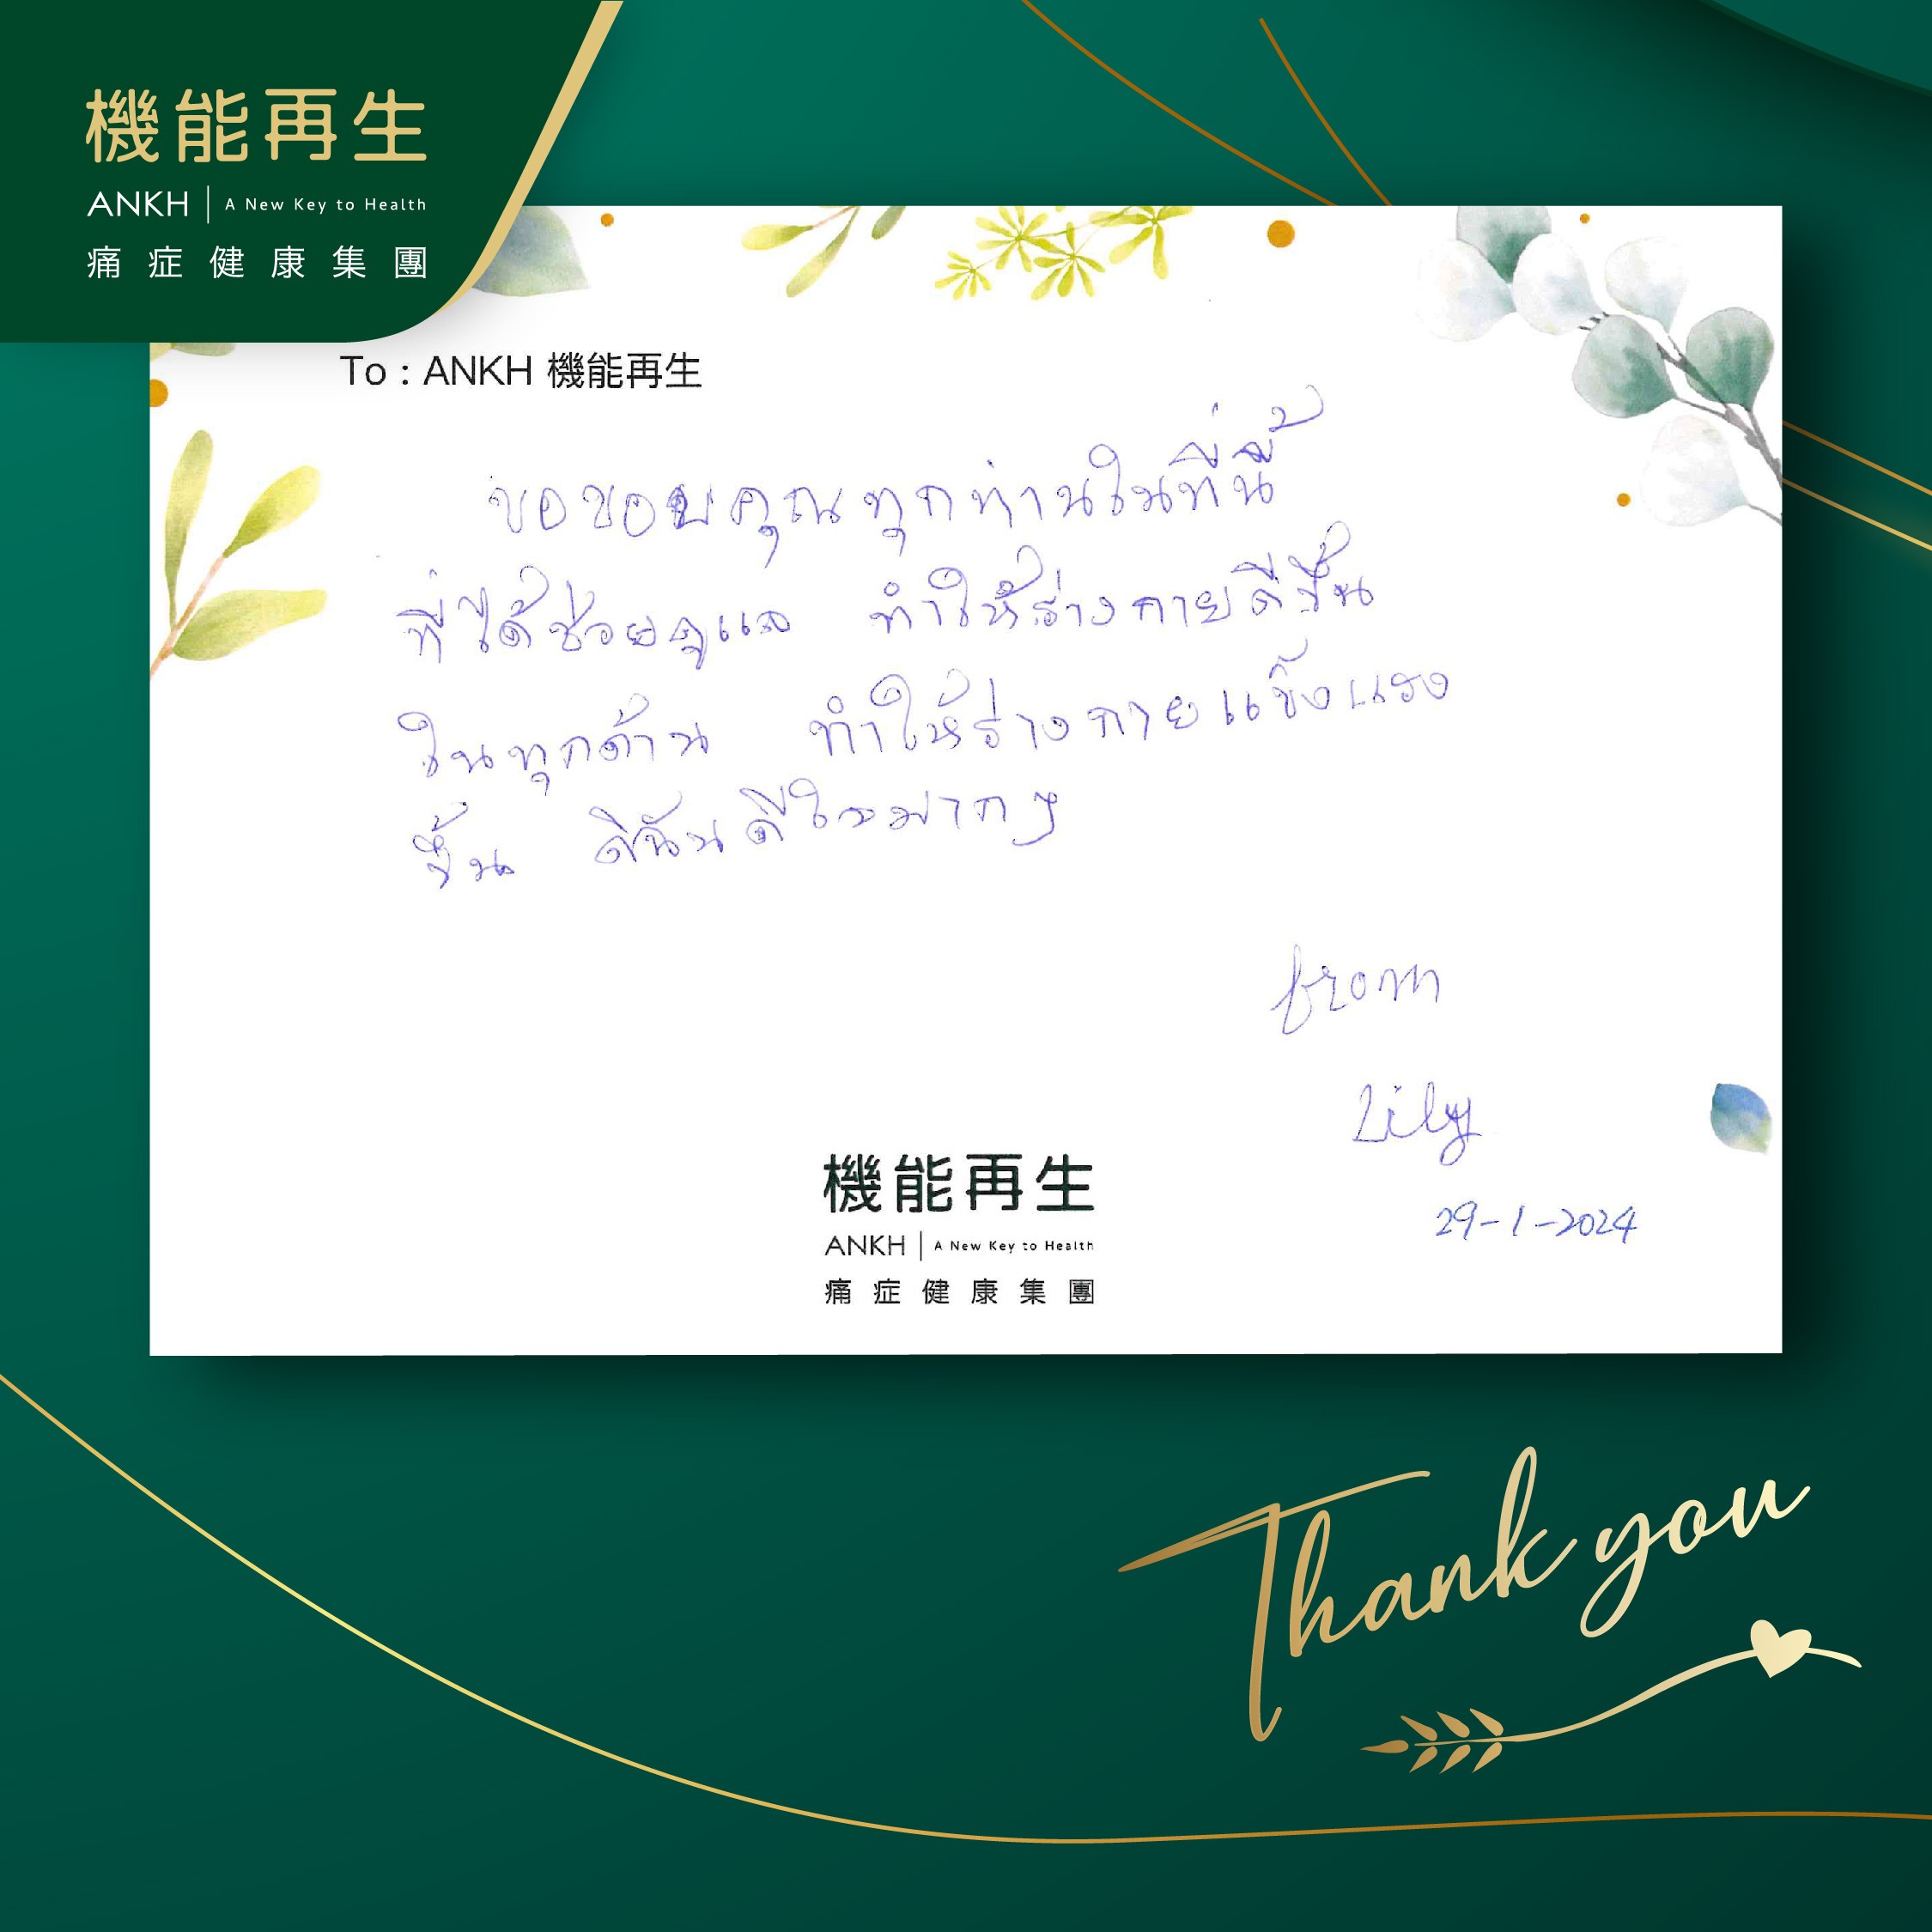 機能再生
ANKH | A New Key to Health
痛症健康集團
To : ANKH 機能再生
ขอขอบคุณทุกท่านในที่นี้
ที่ได้ช่วยดูแล ทำให้ร่างกายดีขึ้น
ในทุกด้าน ทำให้ร่างกายแข็งแรง
ขึ้น ดิฉันดีใจมากๆ
from
Lily
29-1-2024
機能再生
ANKH | A New Key to Health
痛症健康集團
Thank you